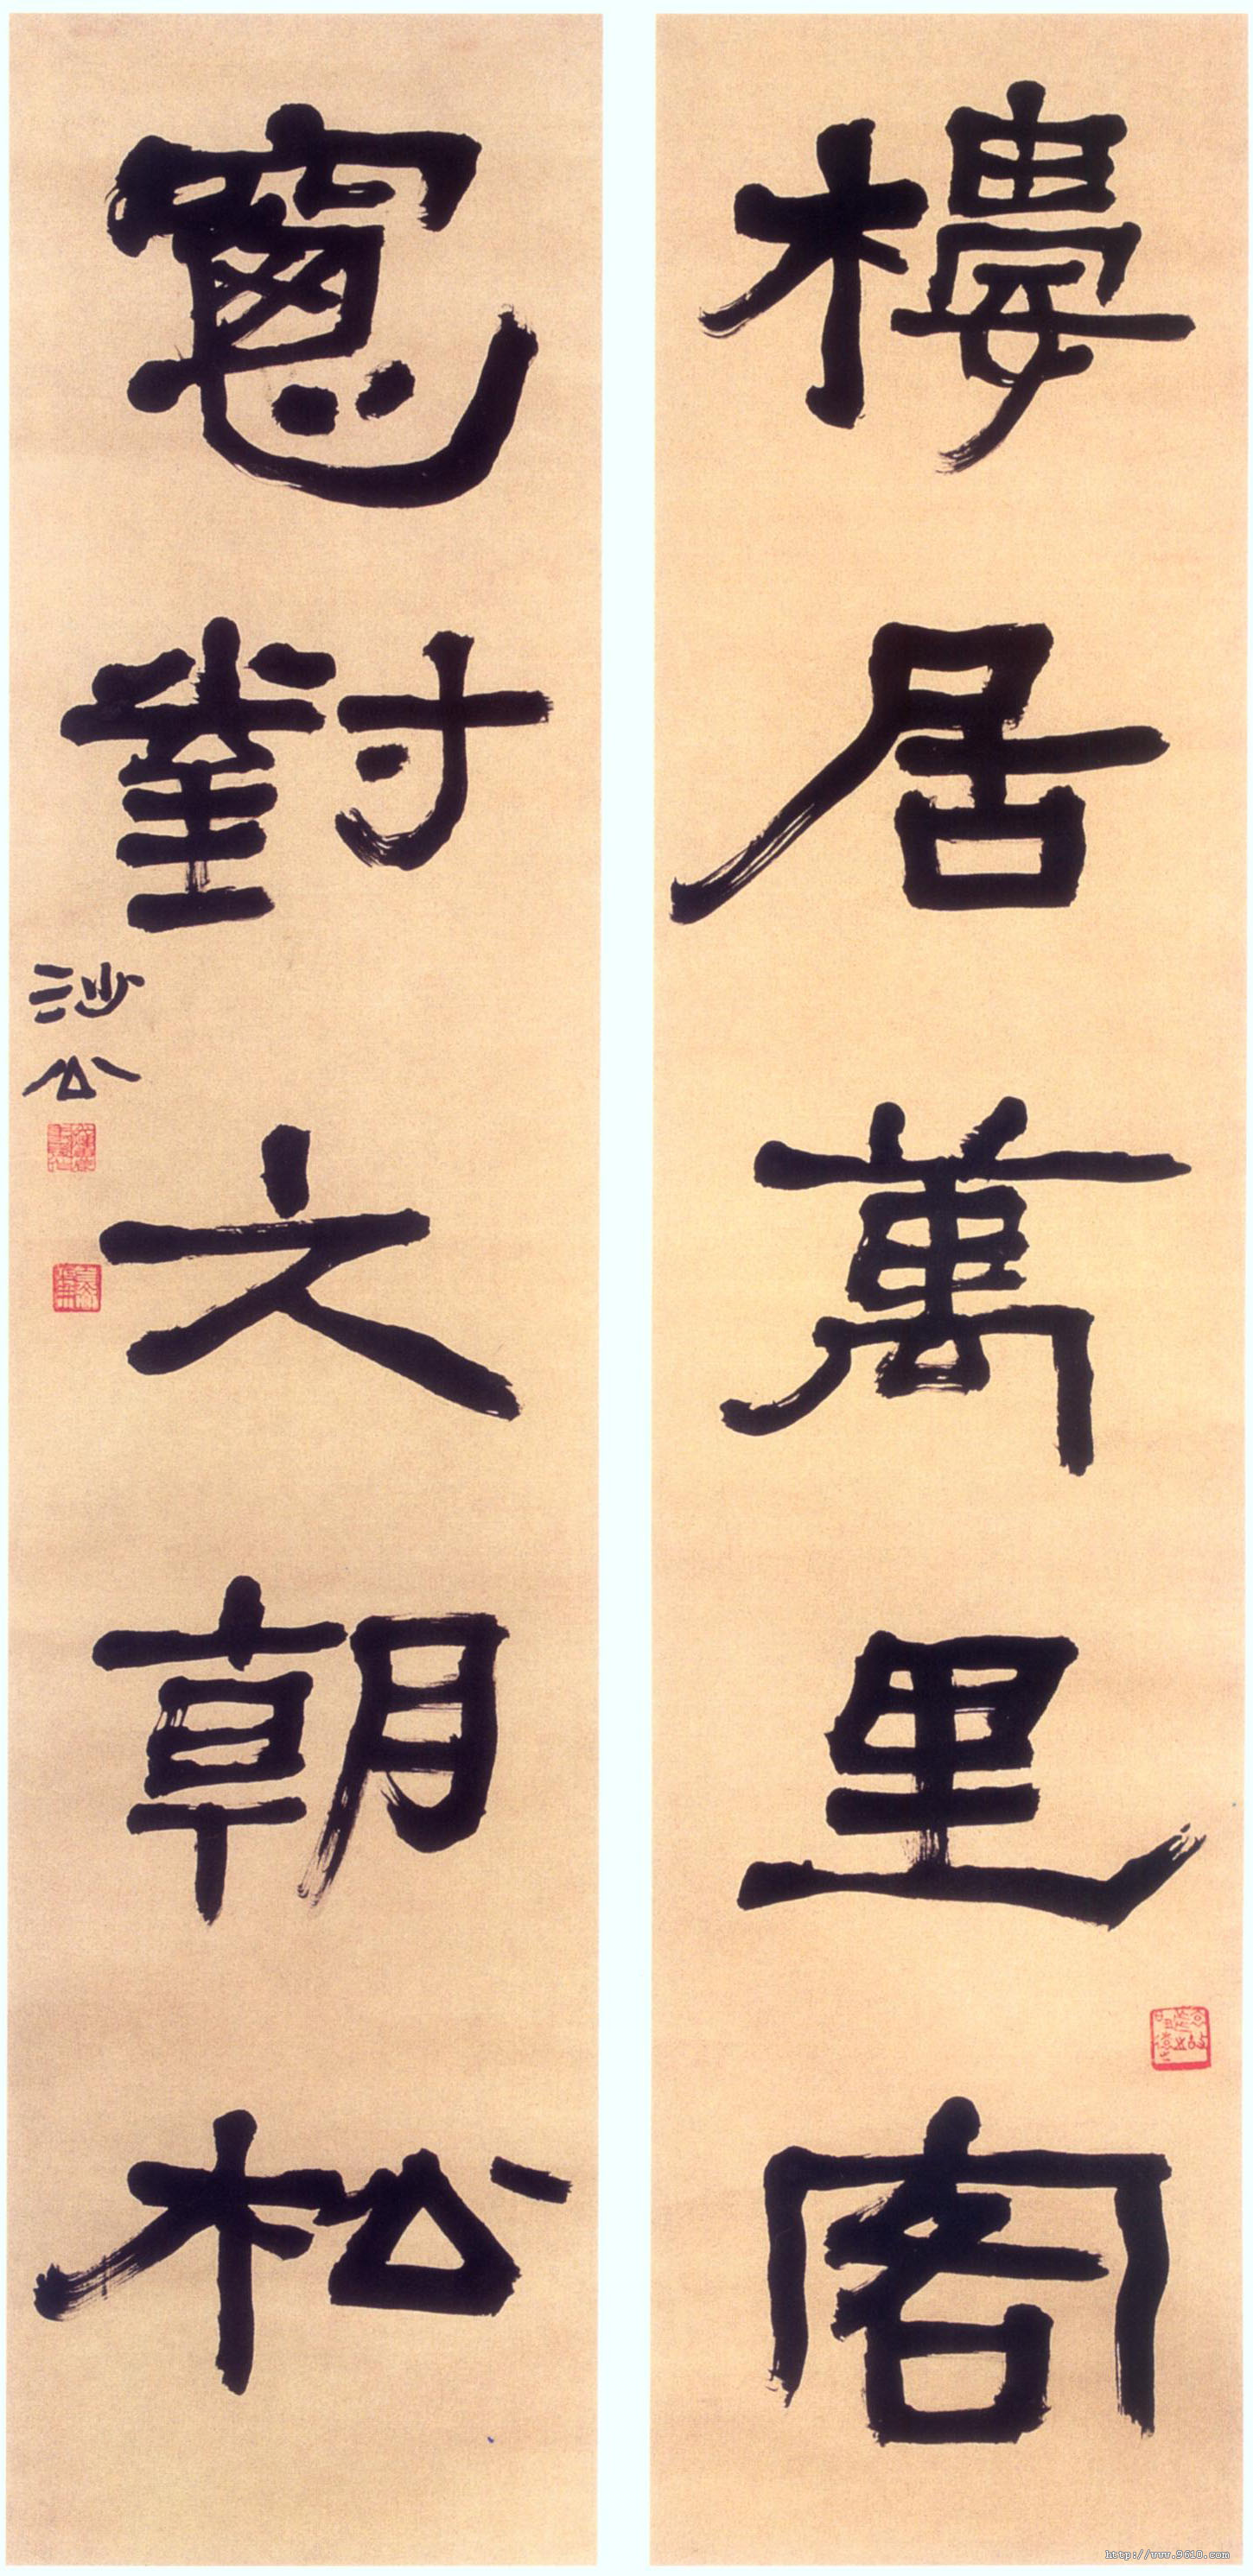 樓居萬里客
窻對六朝松
沙公
http://www.9610.com